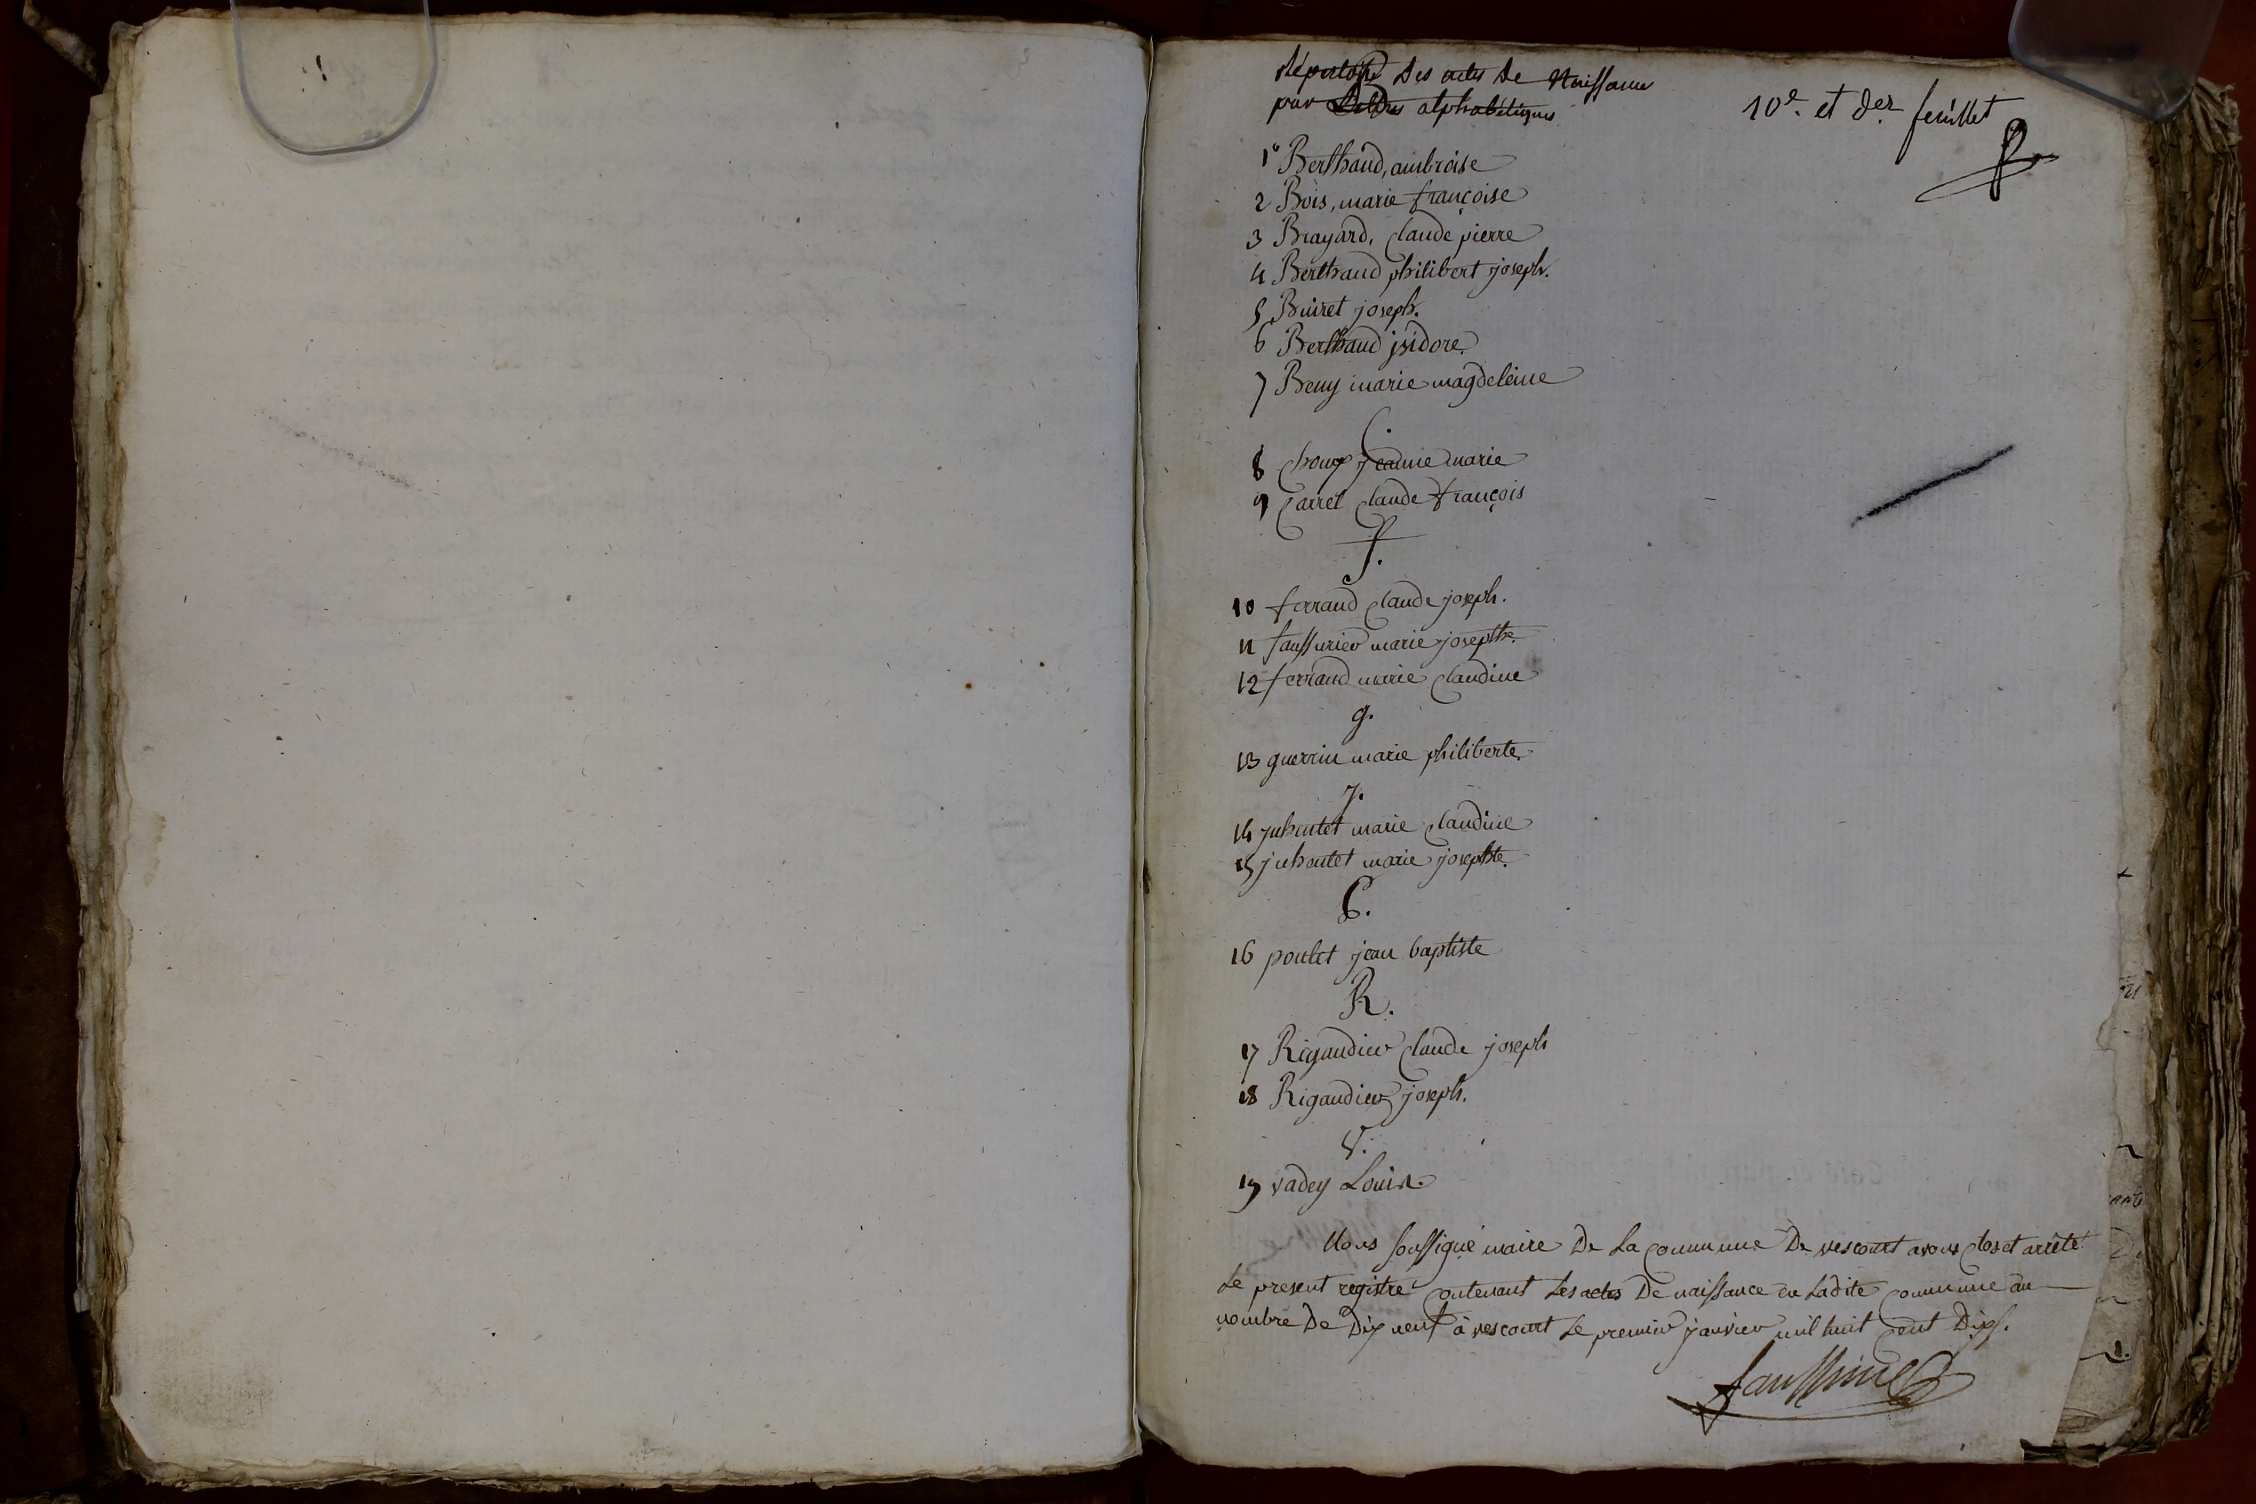 Répertoire Des actes De Naissance
par Lettres alphabétiques
10e. et der. feuillet
1° Berthaud, ambroise
2 Bois, marie françoise
3 Brayard, Claude pierre
4 Berthaud philibert joseph.
5 Buiret joseph.
6 Berthaud jsidore.
7 Beny marie magdeleine
C.
8 Choux jeanne marie
9 Carret Claude françois
f.
10 ferraud Claude joseph.
11 faussurier marie josephte.
12 ferraud marie Claudine
g.
13 guerrin marie philiberte.
J.
14 juhentet marie Claudine
15 juhentet marie josephte.
P.
16 poulet jean baptiste
R.
17 Rigaudier Claude joseph
18 Rigaudier joseph.
V.
19 vadey Louis.
Nous soussigné maire De La Commune De vescourt avons Clos et arrêté
Le present registre Contenant Les actes De naissance en Ladite Commune au
nombre De Dix neuf à vescourt Le premier janvier mil huit Cent Dix.